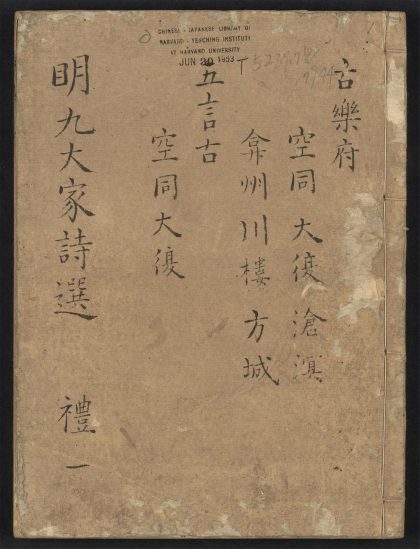 CHINESE - JAPANESE LIBRARY OF
HARVARD - YENCHING INSTITUTE
AT HARVARD UNIVERSITY
JUN 20 1953
古樂府
空同 大復 滄溟
弇州川樓 方城
五言古
空同大復
明九大家詩選 禮一